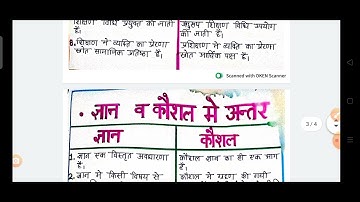 शिक्षण विधि प्रयुक्त की जाती है।
अनुरूप शिक्षण विधि उपयोग की जाती है।
8. शिक्षण में व्यक्ति का प्रेरणा स्रोत सामाजिक प्रतिष्ठा है।
प्रशिक्षण में व्यक्ति का प्रेरणा स्रोत आर्थिक पक्ष है।
Scanned with OKEN Scanner
3/4
• ज्ञान व कौशल मे अन्तर
ज्ञान
कौशल
1. ज्ञान एक विस्तृत अवधारणा है।
कौशल ज्ञान का ही एक भाग है।
2. ज्ञान में किसी विषय से
कौशल में ग्रहण की गयी